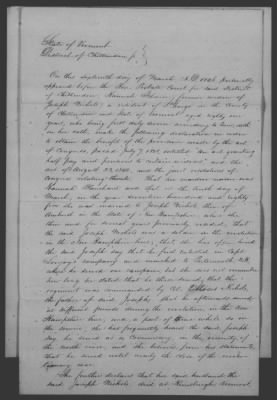 State of Vermont
District of Chittenden ss.
On this sixteenth day of March A.D. 1846 personally
appeared before the Hon. Probate Court for said District
of Chittenden, Hannah former widow of
Joseph Nichols, a resident of in the County
of Chittenden and State of Vermont aged eighty one
years, who being first duly sworn according to law, doth
on her oath, make the following declaration in order
to obtain the benefit of the provision made by the act
of Congress, passed July 7, 1838 entitled "An act granting
half pay and pensions to certain widows", and the
act of August 23, 1842, and the joint resolution of
Congress relating thereto. That her maiden name was
Hannah Blanchard and that on the day of
March, in the year seventeen hundred and eighty
five she was married to Joseph Nichols then of
Amherst in the State of New Hampshire, where she
then and for several years previously resided, that
the said Joseph Nichols was a soldier in the revolution
in the New Hampshire line; that she has often heard
the said Joseph say that he first enlisted in Capt.
company and marched to Portsmouth N.H.
where he served one campaign but she does not remember
how long he stated that he there served, that the
regiment was commanded by Col. Nichols,
the father of said Joseph; that he afterwards served
at different periods during the revolution, in the New
Hampshire line, and a part of the time while so in
the service, she has frequently heard the said Joseph
say he served as a Commissary, in the vicinity of
the north river, and she believes from his statements
that he served until nearly the close of the revolu-
tionary war.
She further declares that her said husband the
said Joseph Nichols, died at Hinesburgh Vermont